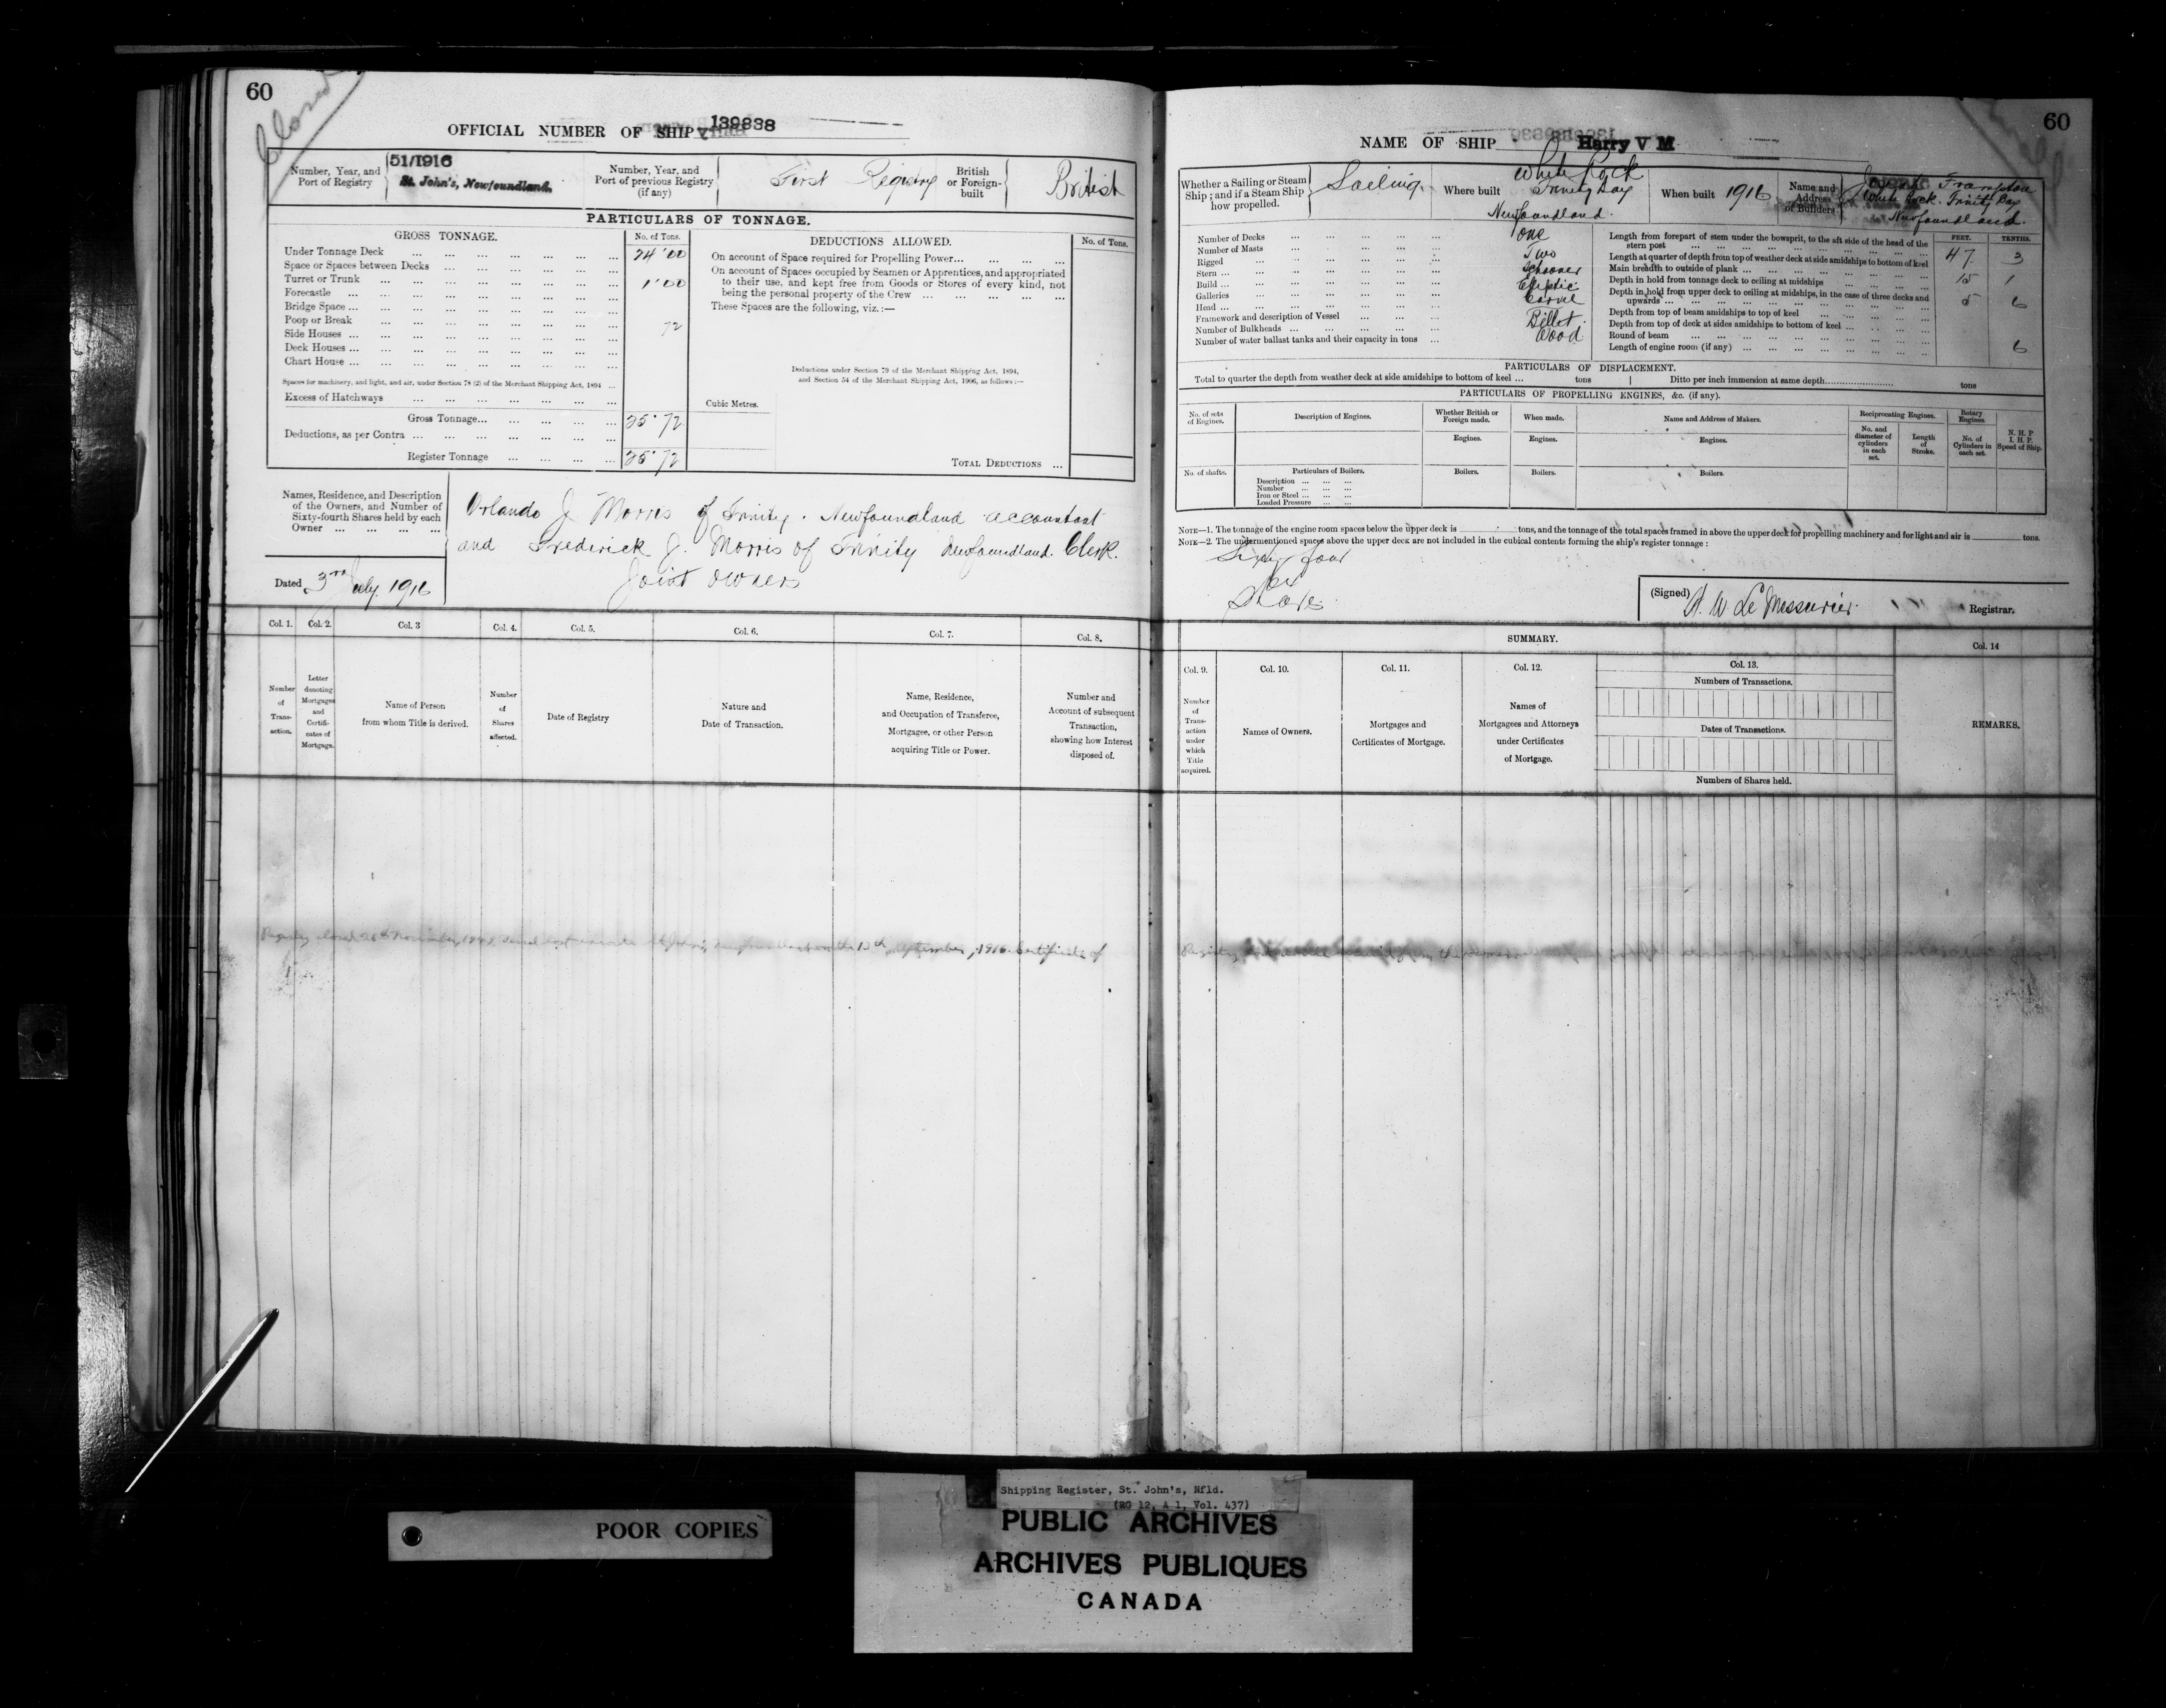 60
Closed
OFFICIAL NUMBER OF SHIP 139838
Number, Year, and Port of Registry
51/1916
St. John's, Newfoundland.
Number, Year, and Port of previous Registry (if any)
First Registry
British or Foreign-built
British
PARTICULARS OF TONNAGE.
GROSS TONNAGE.
No. of Tons.
Under Tonnage Deck ... 24.00
Space or Spaces between Decks ...
Turret or Trunk ... 1.00
Forecastle ...
Bridge Space ...
Poop or Break ... 72
Side Houses ...
Deck Houses ...
Chart House ...
Spaces for machinery, and light, and air, under Section 78 (2) of the Merchant Shipping Act, 1894 ...
Excess of Hatchways ...
Gross Tonnage... 25.72
Deductions, as per Contra ...
Register Tonnage ... 25.72
DEDUCTIONS ALLOWED.
No. of Tons.
On account of Space required for Propelling Power...
On account of Spaces occupied by Seamen or Apprentices, and appropriated
to their use, and kept free from Goods or Stores of every kind, not
being the personal property of the Crew ...
These Spaces are the following, viz.:—
Deductions under Section 79 of the Merchant Shipping Act, 1894,
and Section 54 of the Merchant Shipping Act, 1906, as follows:—
Cubic Metres.
TOTAL DEDUCTIONS ...
Names, Residence, and Description
of the Owners, and Number of
Sixty-fourth Shares held by each
Owner ...
Orlando J Morris of Trinity. Newfoundland accountant
and Frederick J. Morris of Trinity Newfoundland. Clerk.
Joint owners
Dated 3rd July. 1916
Col. 1.
Col. 2.
Col. 3
Col. 4.
Col. 5.
Col. 6.
Col. 7.
Col. 8.
Number of Transaction.
Letter denoting Mortgages and Certificates of Mortgage.
Name of Person from whom Title is derived.
Number of Shares affected.
Date of Registry
Nature and Date of Transaction.
Name, Residence, and Occupation of Transferee, Mortgagee, or other Person acquiring Title or Power.
Number and Account of subsequent Transaction, showing how Interest disposed of.
Registry closed November, 13th September, 1916. Certificate of
60
NAME OF SHIP Harry V M
Whether a Sailing or Steam Ship; and if a Steam Ship how propelled.
Sailing.
Where built
White Rock
Trinity Bay
Newfoundland.
When built 1916
Name and Address of Builders
Frampton
White Rock. Trinity Bay
Newfoundland.
Number of Decks ... One
Number of Masts ... Two
Rigged ... Schooner
Stern ... Elliptic
Build ... Carvel
Galleries ...
Head ... Billet.
Framework and description of Vessel ... Wood
Number of Bulkheads ...
Number of water ballast tanks and their capacity in tons ...
FEET. TENTHS.
Length from forepart of stem under the bowsprit, to the aft side of the head of the stern post ... 47 3
Length at quarter of depth from top of weather deck at side amidships to bottom of keel
Main breadth to outside of plank ... 15 1
Depth in hold from tonnage deck to ceiling at midships ... 5 6
Depth in hold from upper deck to ceiling at midships, in the case of three decks and upwards ...
Depth from top of beam amidships to top of keel ...
Depth from top of deck at sides amidships to bottom of keel ...
Round of beam ... 6
Length of engine room (if any) ...
PARTICULARS OF DISPLACEMENT.
Total to quarter the depth from weather deck at side amidships to bottom of keel ... tons
Ditto per inch immersion at same depth... tons
PARTICULARS OF PROPELLING ENGINES, &c. (if any).
No. of sets of Engines.
Description of Engines.
Whether British or Foreign made.
When made.
Name and Address of Makers.
Reciprocating Engines.
Rotary Engines.
N. H. P
I. H. P.
Speed of Ship.
No. and diameter of cylinders in each set.
Length of Stroke.
No. of Cylinders in each set.
Engines.
Engines.
Engines.
No. of shafts.
Particulars of Boilers.
Boilers.
Boilers.
Boilers.
Description ...
Number ...
Iron or Steel ...
Loaded Pressure ...
NOTE—1. The tonnage of the engine room spaces below the upper deck is tons, and the tonnage of the total spaces framed in above the upper deck for propelling machinery and for light and air is tons.
NOTE—2. The undermentioned spaces above the upper deck are not included in the cubical contents forming the ship's register tonnage:
Sixty four
64
Shares
(Signed) H. W. Le Messurier Registrar.
SUMMARY.
Col. 9.
Col. 10.
Col. 11.
Col. 12.
Col. 13.
Col. 14
Number of Transaction under which Title acquired.
Names of Owners.
Mortgages and Certificates of Mortgage.
Names of Mortgagees and Attorneys under Certificates of Mortgage.
Numbers of Transactions.
Dates of Transactions.
Numbers of Shares held.
REMARKS.
Registry
POOR COPIES
Shipping Register, St. John's, Nfld.
(RG 12, A 1, Vol. 437)
PUBLIC ARCHIVES
ARCHIVES PUBLIQUES
CANADA